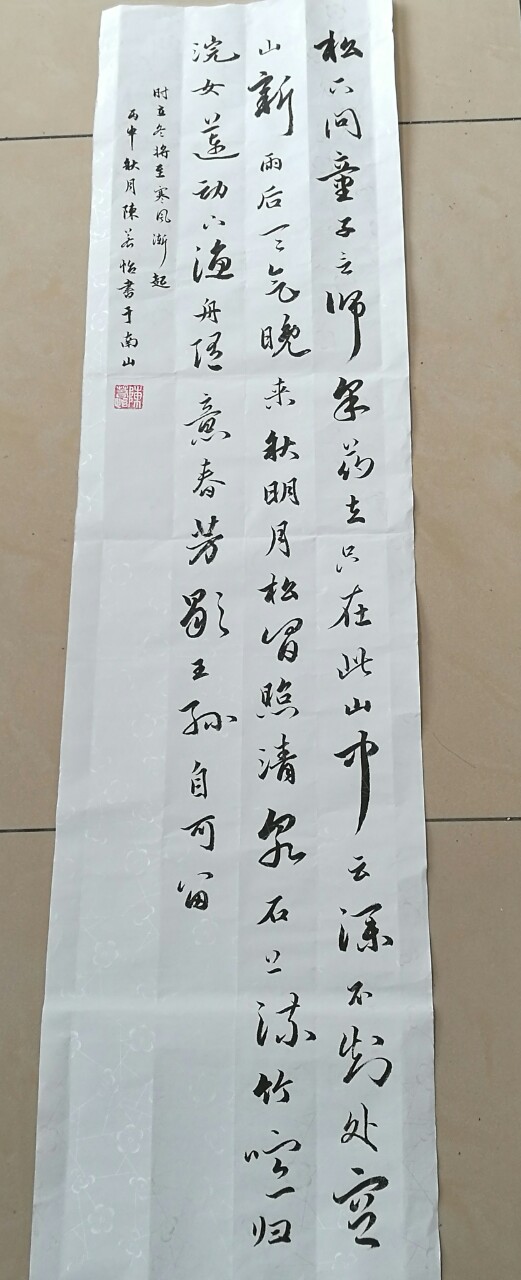 松下问童子言师采药去只在此山中云深不知处空
山新雨后天气晚来秋明月松间照清泉石上流竹喧归
浣女莲动下渔舟随意春芳歇王孙自可留
时立冬将至寒风渐起
丙申秋月陳若怡書于南山